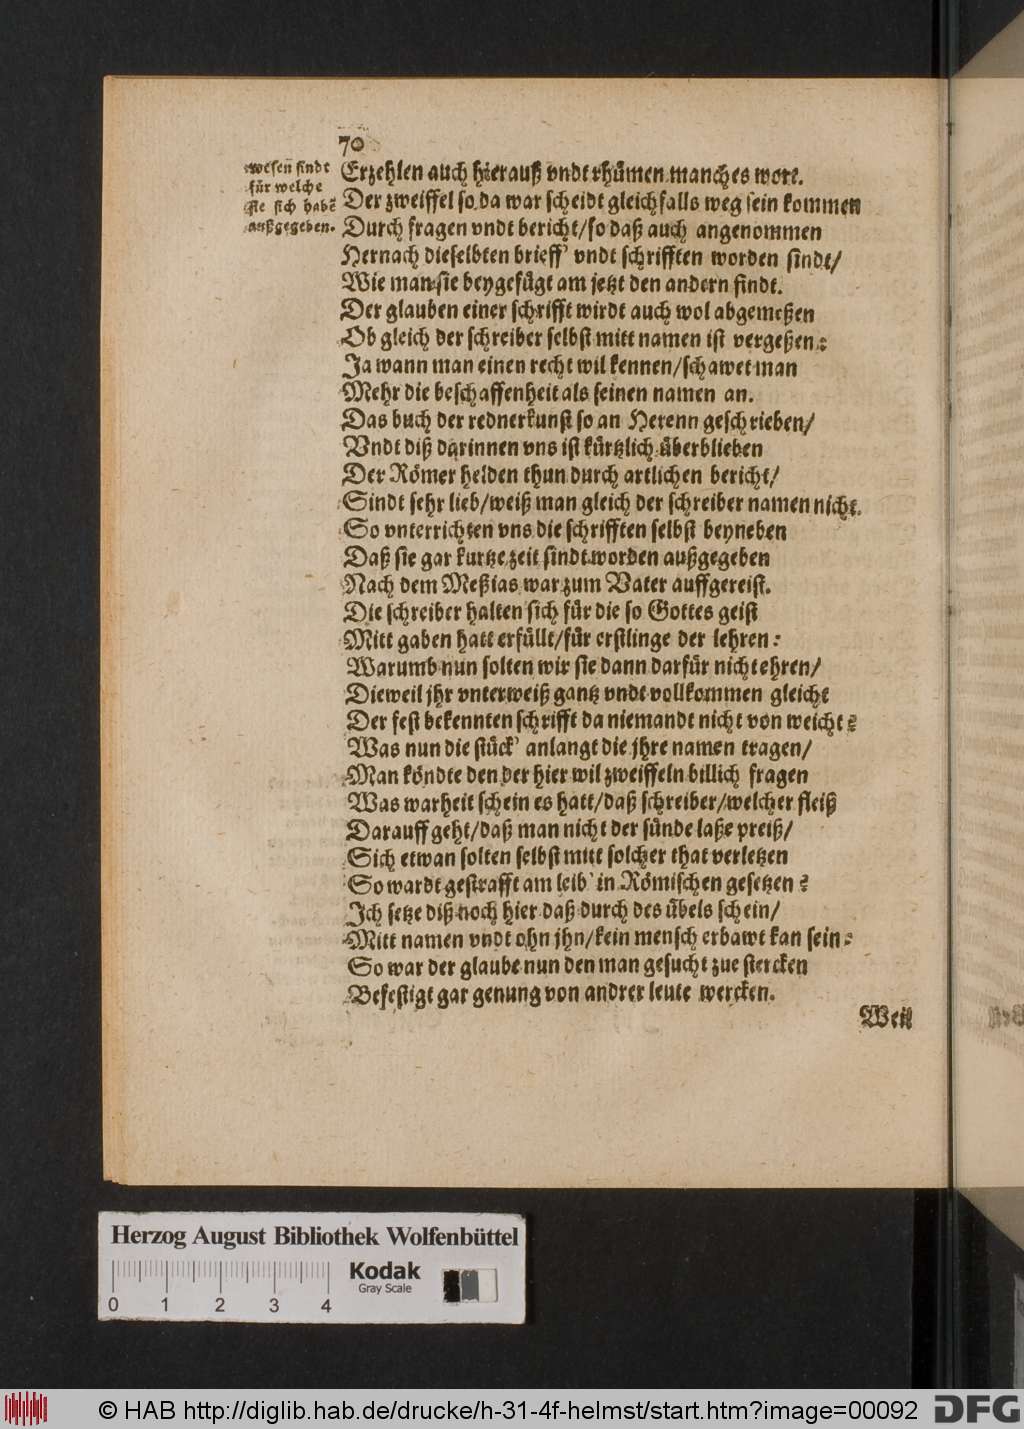 70
wesen sindt
für welche
sie sich habē
außgegeben.
Erzehlen auch hierauß vndt rhümen manches wort.
Der zweiffel so da war scheidt gleichfalls weg sein kommen
Durch fragen vndt bericht/so daß auch angenommen
Hernach dieselbten brieff' vndt schrifften worden sindt/
Wie man sie beygefügt am jetzt den andern findt.
Der glauben einer schrifft wirdt auch wol abgemeßen
Ob gleich der schreiber selbst mitt namen ist vergeßen:
Ja wann man einen recht wil kennen/schawet man
Mehr die beschaffenheit als seinen namen an.
Das buch der rednerkunst so an Herenn geschrieben/
Vndt diß darinnen vns ist kürtzlich überblieben
Der Römer helden thun durch artlichen bericht/
Sindt sehr lieb/weiß man gleich der schreiber namen nicht.
So vnterrichten vns die schrifften selbst beyneben
Daß sie gar kurtze zeit sindt worden außgegeben
Nach dem Meßias war zum Vater auffgereist.
Die schreiber halten sich für die so Gottes geist
Mitt gaben hatt erfüllt/für erstlinge der lehren:
Warumb nun solten wir sie dann darfür nicht ehren/
Dieweil jhr vnterweiß gantz vndt vollkommen gleicht
Der fest bekennten schrifft da niemandt nicht von weicht?
Was nun die stück' anlangt die jhre namen tragen/
Man köndte den der hier wil zweiffeln billich fragen
Was warheit schein es hatt/daß schreiber/welcher fleiß
Darauff geht/daß man nicht der sünde laße preiß/
Sich etwan solten selbst mitt solcher that verletzen
So wardt gestrafft am leib' in Römischen gesetzen?
Ich setze diß noch hier daß durch des übels schein/
Mitt namen vndt ohn jhn/kein mensch erbawt kan sein:
So war der glaube nun den man gesucht zue stercken
Befestigt gar genung von andrer leute wercken.
Weil
Herzog August Bibliothek Wolfenbüttel
Kodak
Gray Scale
0 1 2 3 4
© HAB http://diglib.hab.de/drucke/h-31-4f-helmst/start.htm?image=00092
DFG